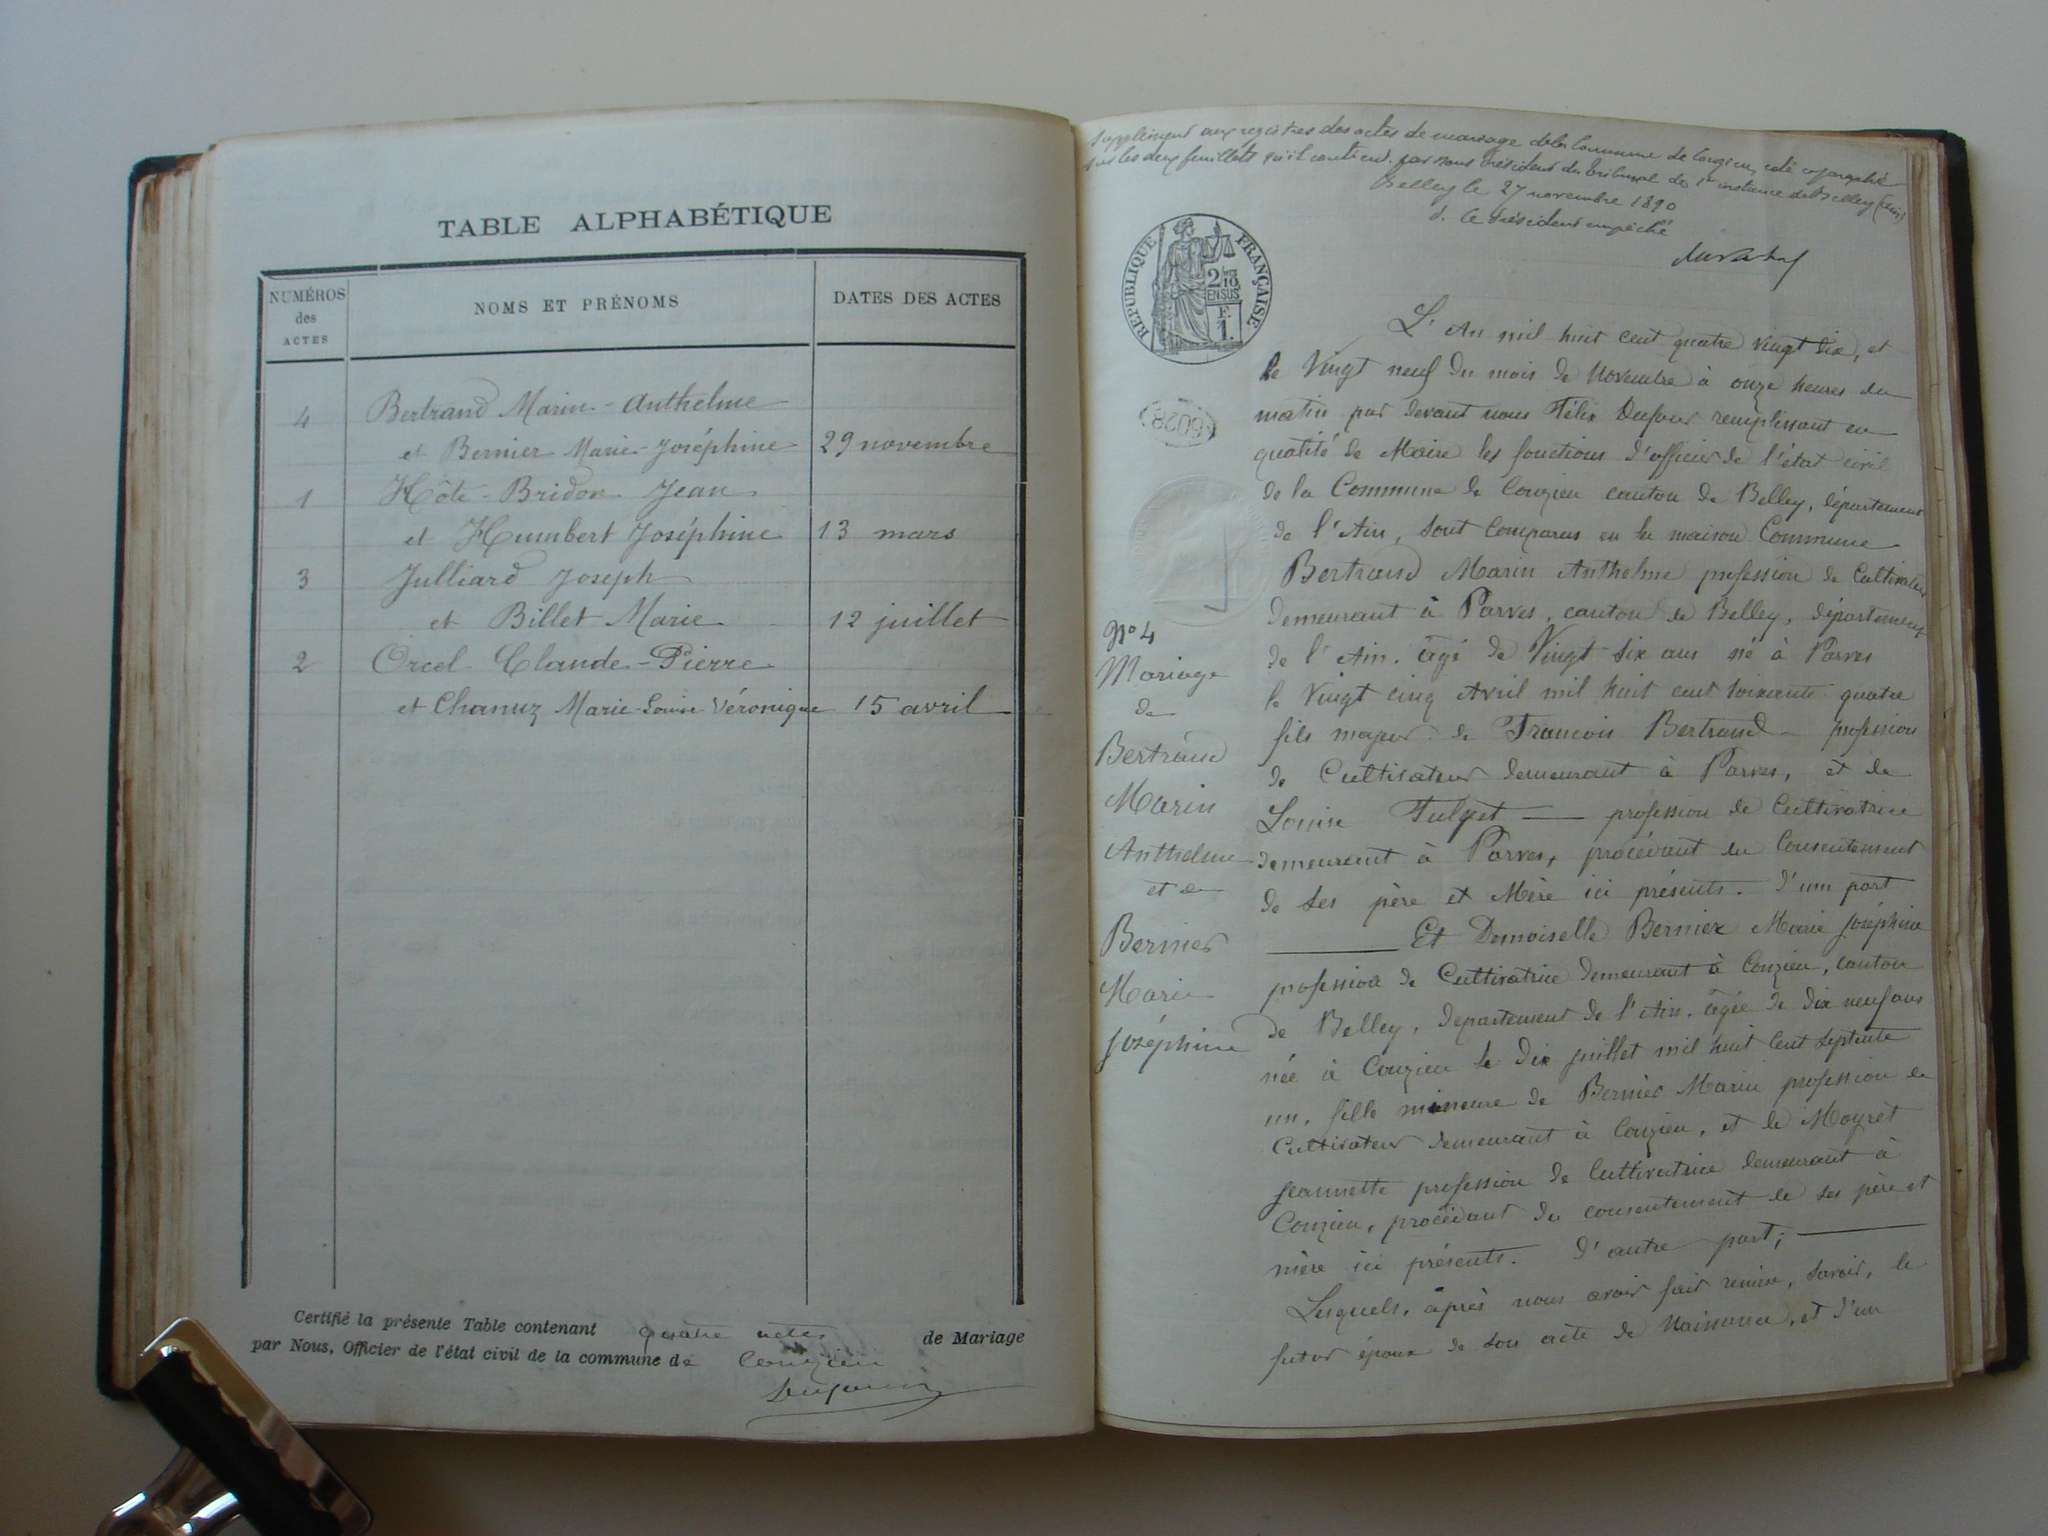 TABLE ALPHABÉTIQUE
NUMÉROS des ACTES
NOMS ET PRÉNOMS
DATES DES ACTES
4 Bertrand Marin-Anthelme
et Bernier Marie-Joséphine 29 novembre
1 Hôte-Bridon Jean
et Humbert Joséphine 13 mars
3 Julliard Joseph
et Billet Marie 12 juillet
2 Orcel Claude-Pierre
et Chanuz Marie-Louise Véronique 15 avril
Certifié la présente Table contenant quatre actes de Mariage
par Nous, Officier de l'état civil de la commune de Conzieu
Supplément aux registres des actes de mariage de la Commune de Conzieu, coté et paraphé
sur les deux feuillets qu'il contient par nous président du tribunal de 1re instance de Belley (Ain)
Belley le 27 novembre 1890
p. le président empêché
RÉPUBLIQUE FRANÇAISE
2/10
EN SUS
F.
1.
6028
L'An mil huit cent quatre vingt dix, et
le Vingt neuf du mois de Novembre à onze heures du
matin par devant nous Félix Dufour remplissant en
qualité de Maire les fonctions d'officier de l'état civil
de la Commune de Conzieu canton de Belley, département
de l'Ain, sont Comparus en la maison Commune
Bertrand Marin Anthelme profession de Cultivateur
demeurant à Parves, canton de Belley, département
de l'Ain. âgé de Vingt-six ans né à Parves
le Vingt cinq Avril mil huit cent soixante quatre
fils majeur de Francois Bertrand profession
de Cultivateur demeurant à Parves, et de
Louise Fulpet profession de Cultivatrice
demeurant à Parves, procédant du Consentement
de ses père et Mère ici présents. d'une part
Et Demoiselle Bernier Marie Joséphine
profession de Cultivatrice demeurant à Conzieu, canton
de Belley, département de l'Ain, âgée de dix neuf ans
née à Conzieu le Dix juillet mil huit cent septente
un, fille mineure de Bernier Marin profession de
Cultivateur demeurant à Conzieu, et de Moyret
Jeannette profession de Cultivatrice demeurant à
Conzieu, procédant du consentement de ses père et
mère ici présents. d'autre part;
Lesquels, après nous avoir fait remise, savoir, le
futur époux de son acte de Naissance, et d'un
No 4
Mariage
de
Bertrand
Marin
Anthelme
et de
Bernier
Marie
Joséphine